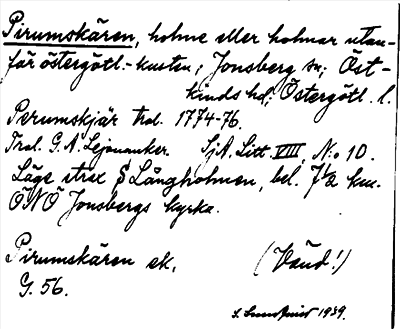 Pirumskären, holme eller holmar utan-
för östergötl.-kusten; Jonsberg sn; Öst-
kinds hd; Östergötl. l.
Perumskjär Trol. 1774-76.
Trol. G. A. Lejonanker. SjA. Litt. VIII, N:o 10.
Läge strax S Långholmen, bel. 7 1/2 km.
ÖNÖ Jonsbergs kyrka.
Pirumskären ek. (Vänd!)
G. 56.
1939.